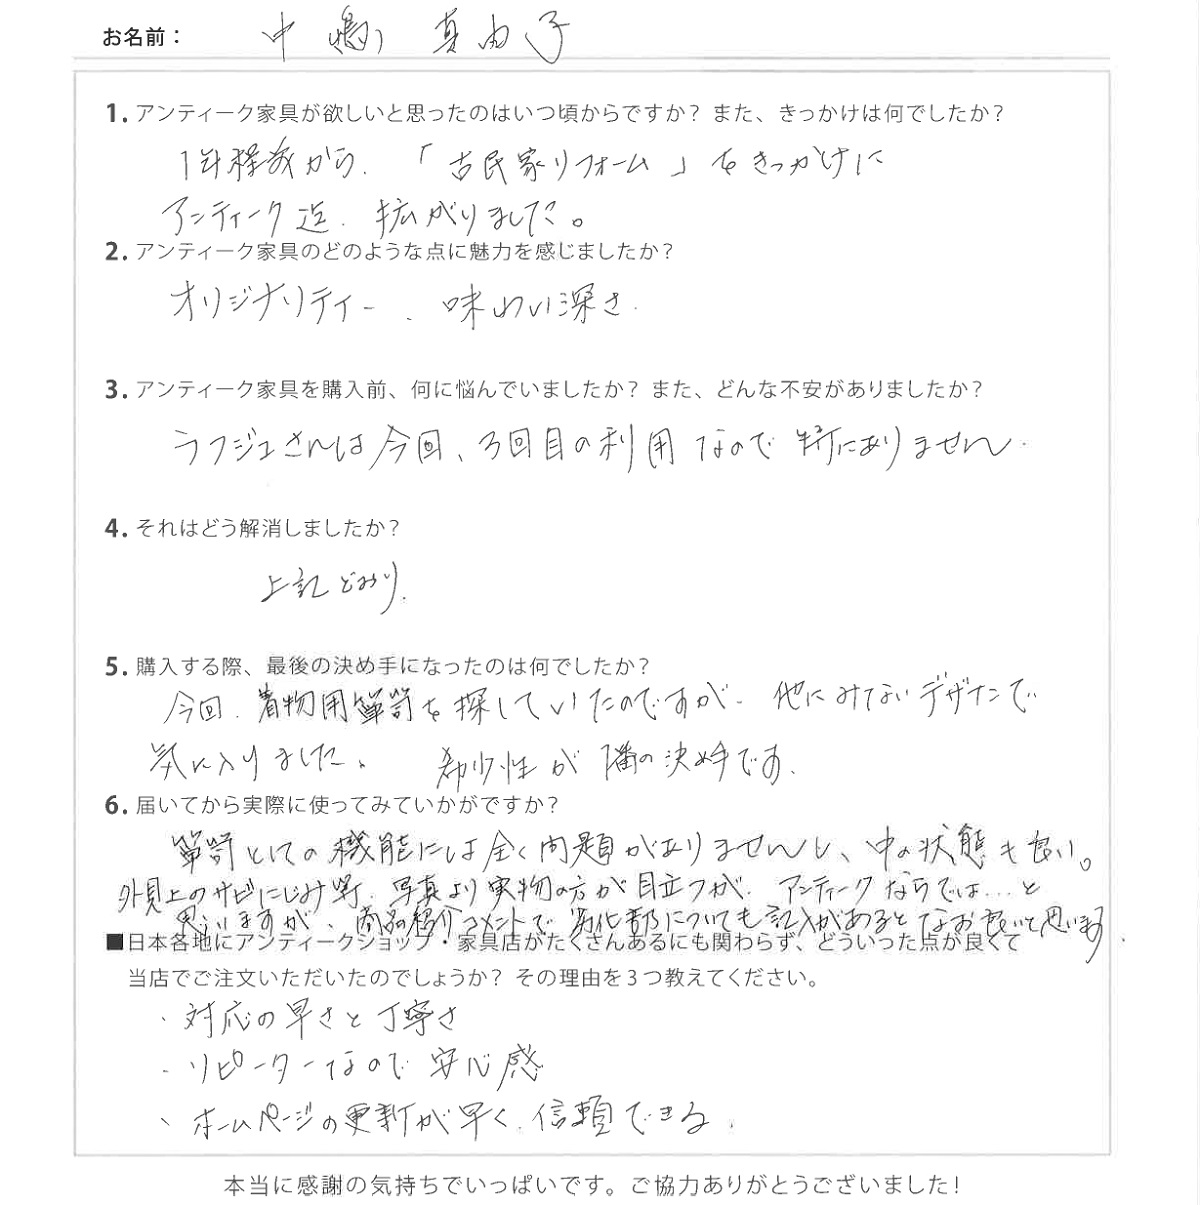 お名前： 中嶋 真由子
1. アンティーク家具が欲しいと思ったのはいつ頃からですか？ また、きっかけは何でしたか？
1年程前から、「古民家リフォーム」をきっかけに
アンティーク迄、拡がりました。
2. アンティーク家具のどのような点に魅力を感じましたか？
オリジナリティー、味わい深さ.
3. アンティーク家具を購入前、何に悩んでいましたか？ また、どんな不安がありましたか？
ラフジュさんは今回、3回目の利用なので特にありません.
4. それはどう解消しましたか？
上記どおり.
5. 購入する際、最後の決め手になったのは何でしたか？
今回、着物用箪笥を探していたのですが、他にみないデザインで
気に入りました。希少性が1番の決め手です.
6. 届いてから実際に使ってみていかがですか？
箪笥としての機能には全く問題がありませんし、中の状態も良い。
外見上のサビにじみ等、写真より実物の方が目立つが、アンティークならでは…と
思いますが、商品紹介コメントで劣化部についても記入があるとなお良いと思います.
■日本各地にアンティークショップ・家具店がたくさんあるにも関わらず、どういった点が良くて
当店でご注文いただいたのでしょうか？ その理由を3つ教えてください。
・対応の早さと丁寧さ
・リピーターなので安心感
・ホームページの更新が早く、信頼できる.
本当に感謝の気持ちでいっぱいです。ご協力ありがとうございました！